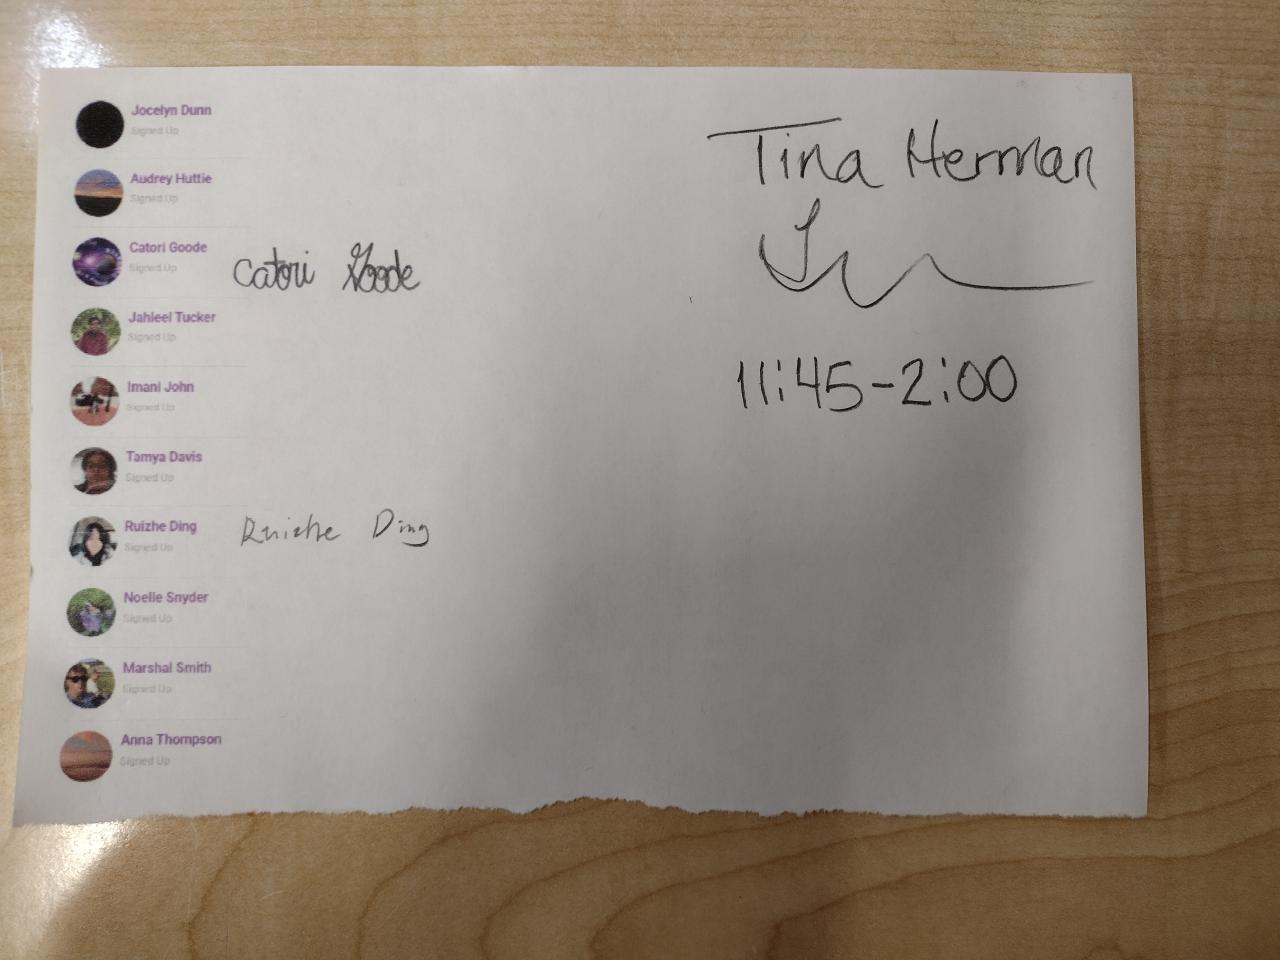 Jocelyn Dunn
Signed Up
Audrey Huttie
Signed Up
Catori Goode
Signed Up
Catori Goode
Jahleel Tucker
Signed Up
Imani John
Signed Up
Tamya Davis
Signed Up
Ruizhe Ding
Signed Up
Ruizhe Ding
Noelle Snyder
Signed Up
Marshal Smith
Signed Up
Anna Thompson
Signed Up
Tina Herman
11:45-2:00